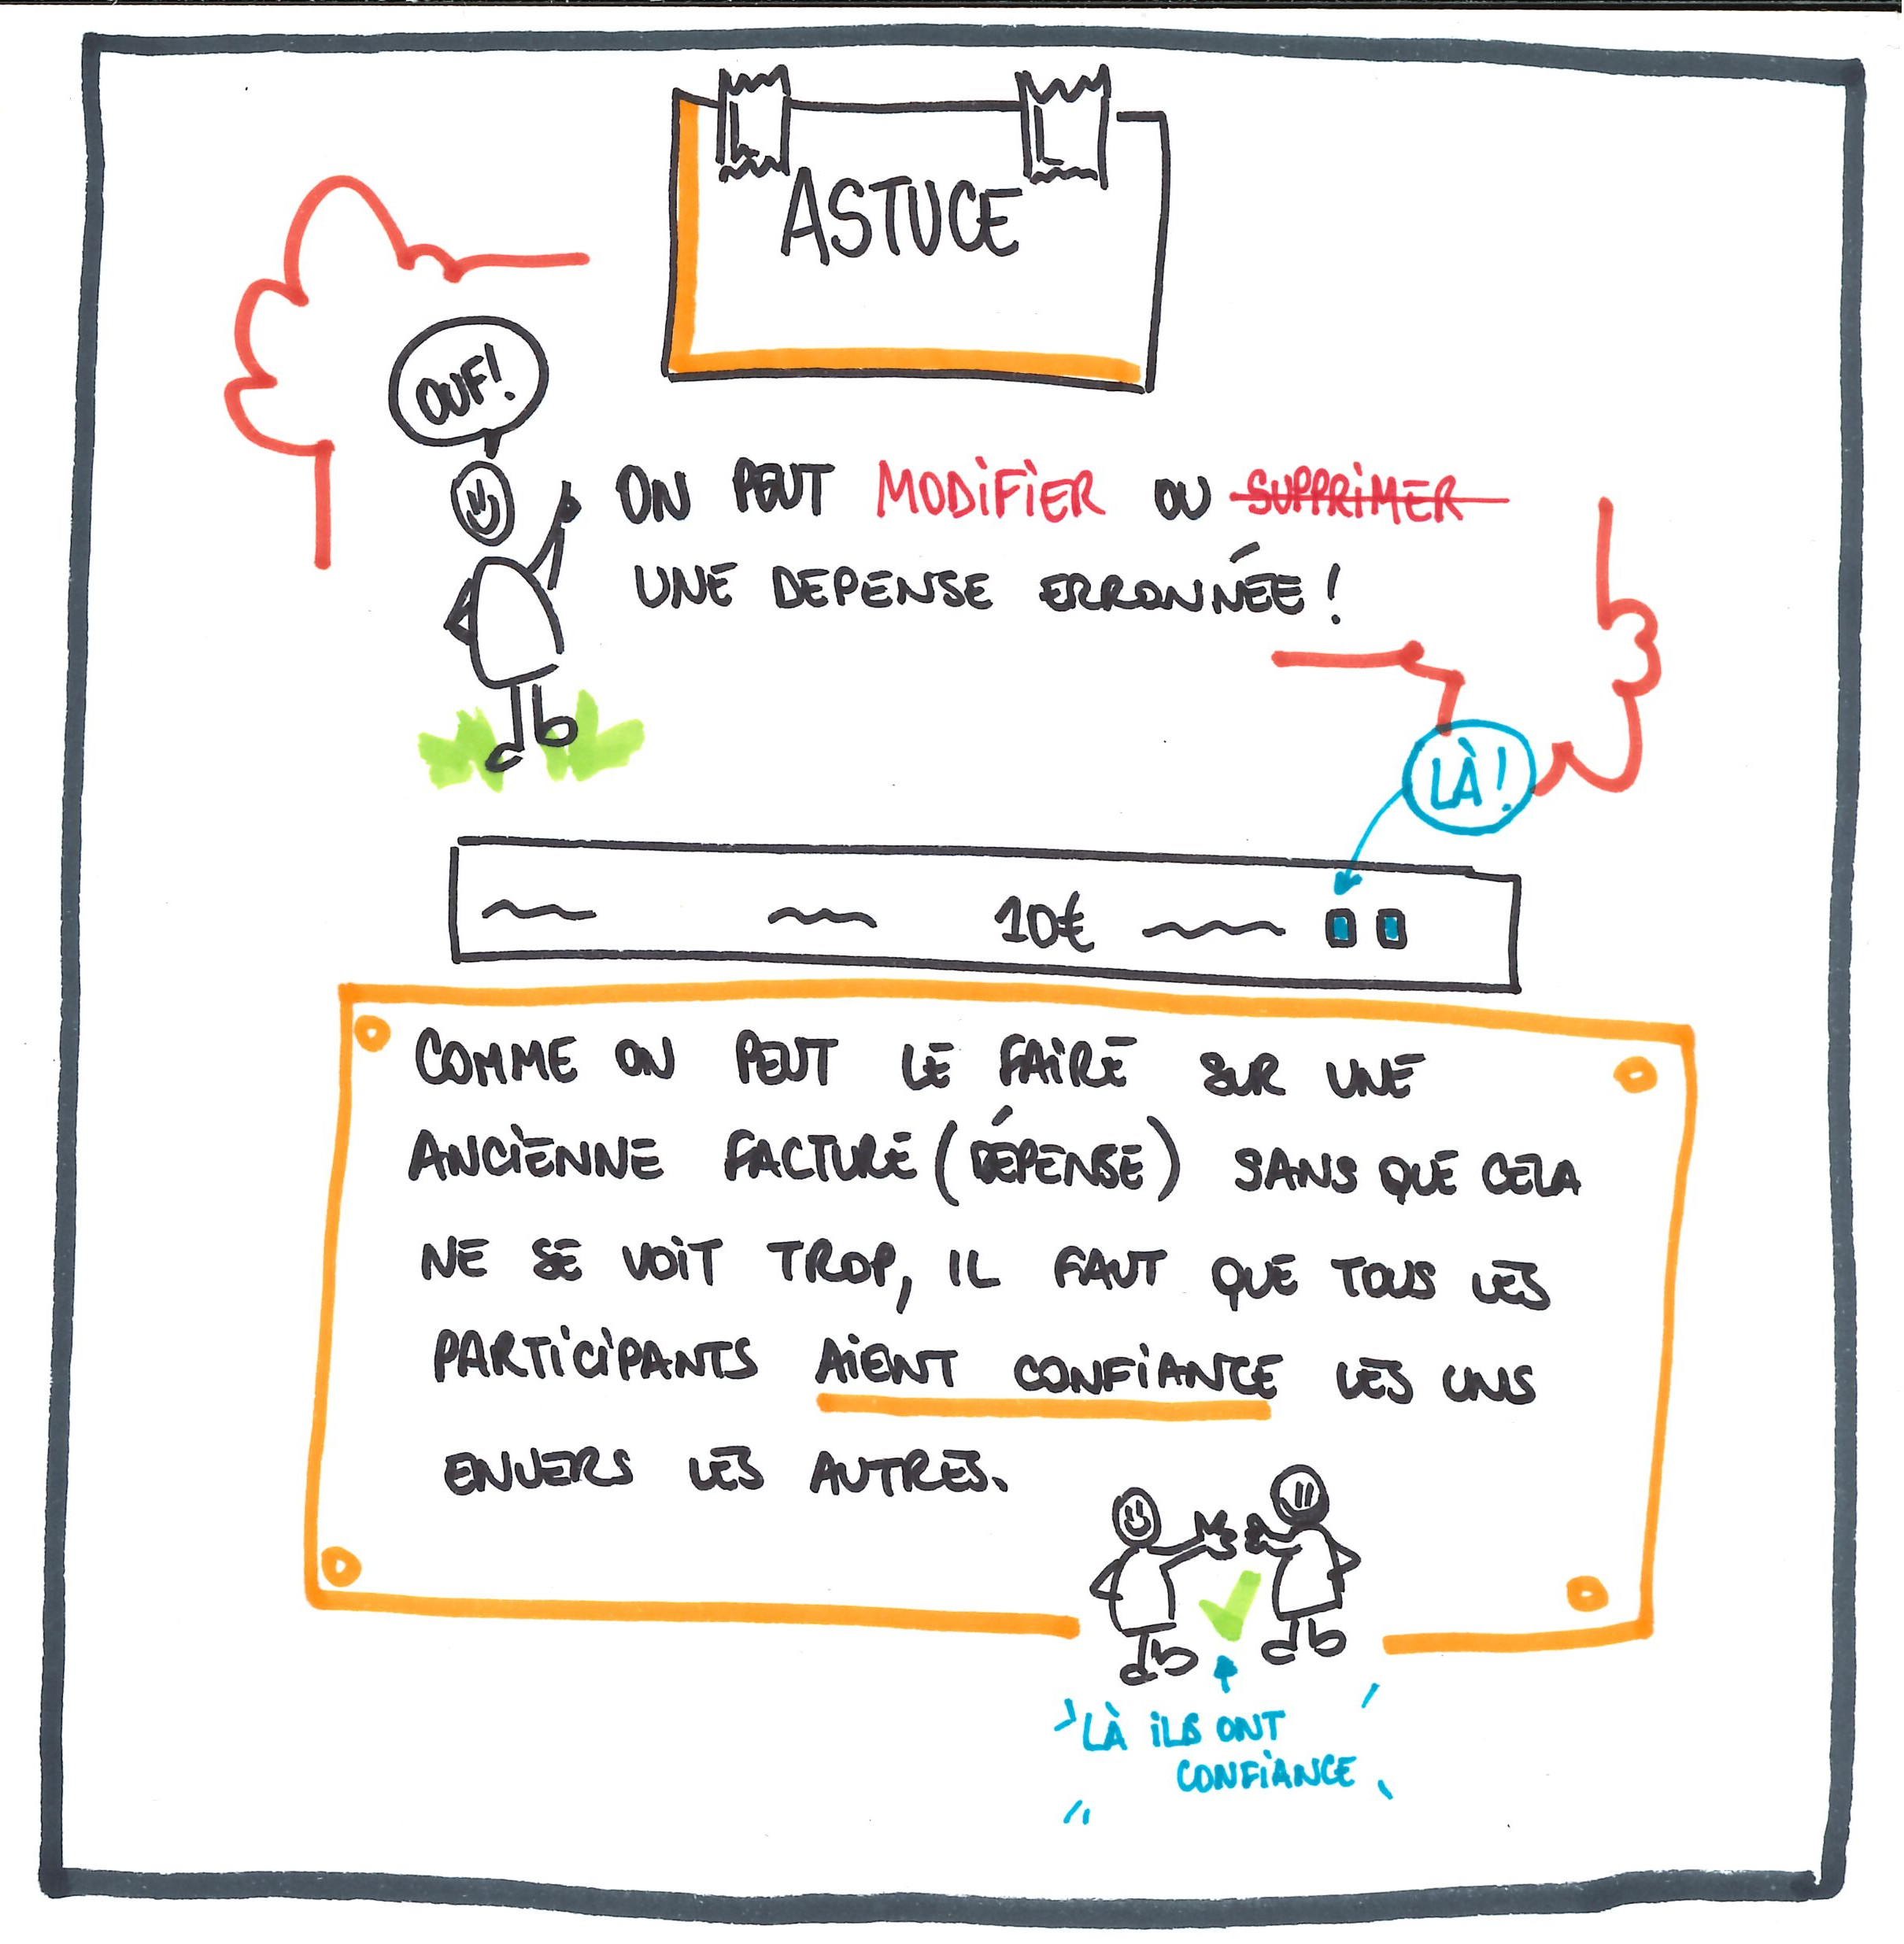 ASTUCE
OUF!
ON PEUT MODIFIER OU SUPPRIMER
UNE DEPENSE ERRONNÉE !
LÀ !
10€
COMME ON PEUT LE FAIRE SUR UNE
ANCIENNE FACTURE (DÉPENSE) SANS QUE CELA
NE SE VOIT TROP, IL FAUT QUE TOUS LES
PARTICIPANTS AIENT CONFIANCE LES UNS
ENVERS LES AUTRES.
LÀ ILS ONT
CONFIANCE